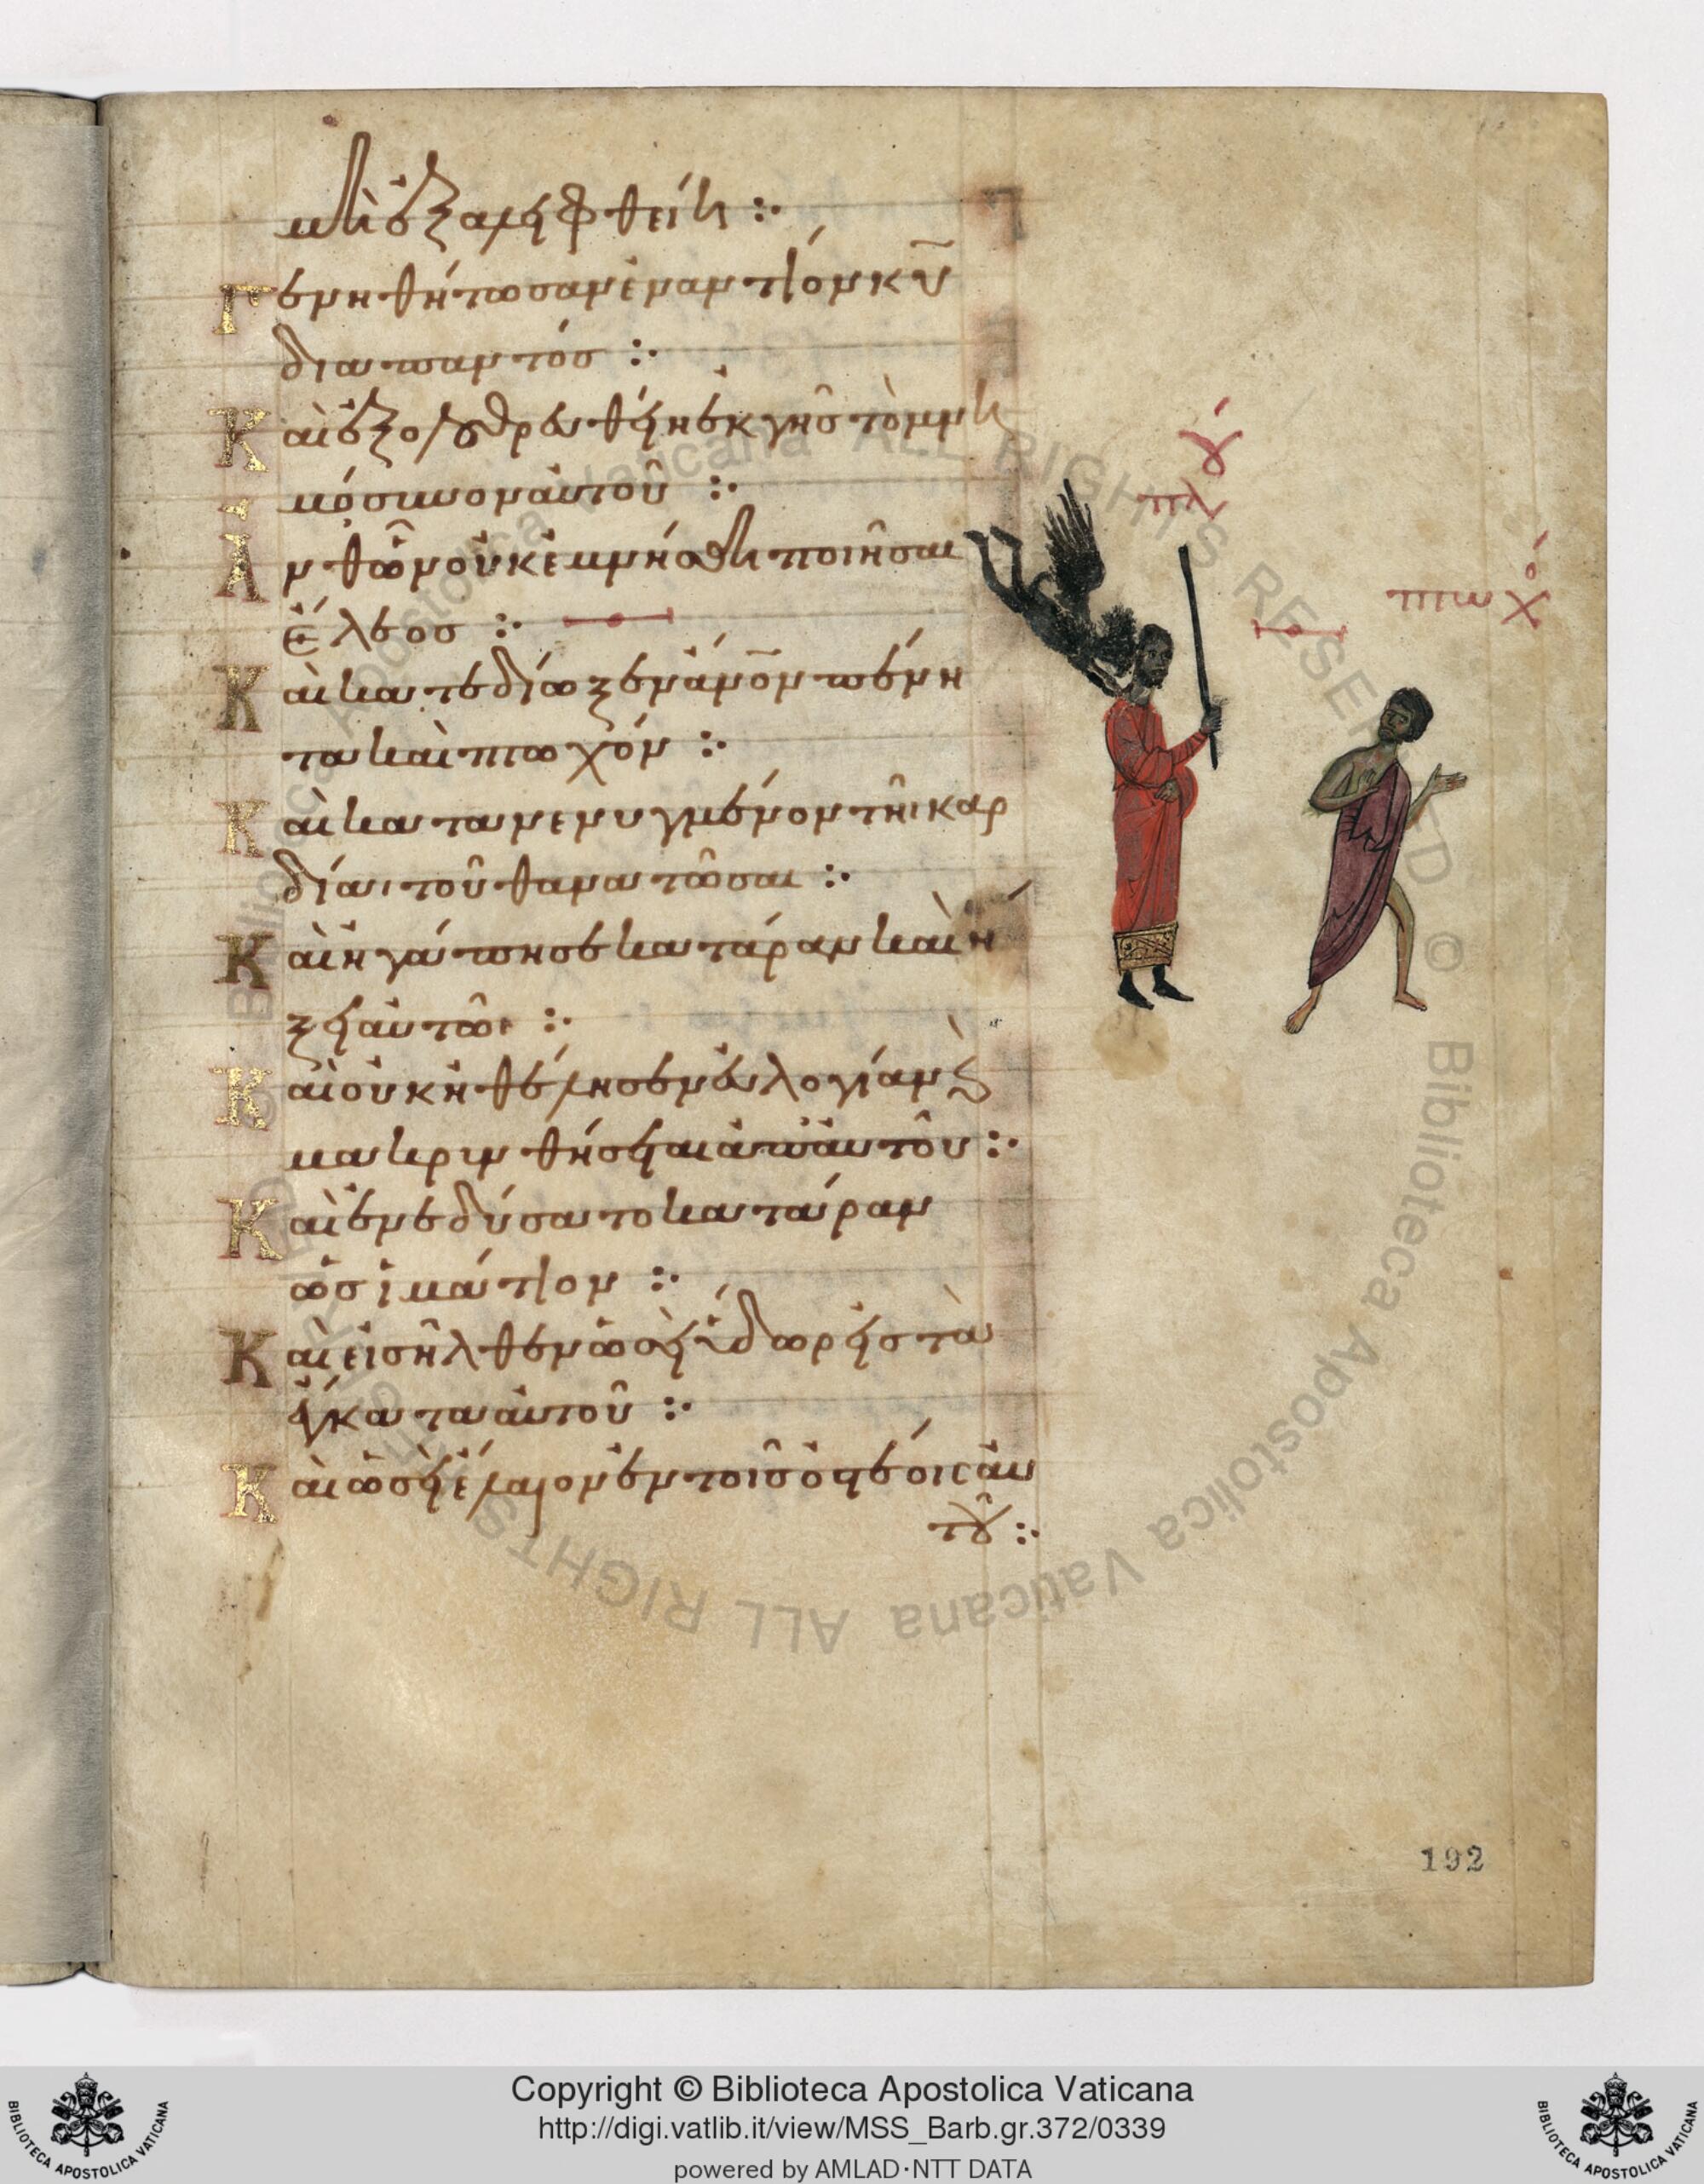 μὴ ἐξαλειφθείη :·
Γενηθήτωσαν ἐναντίον κ̅υ̅
διαπαντόσ :·
Καὶ ἐξολεθρευθείη ἐκ γῆσ τὸ μνη
μόσυνον αὐτοῦ :·
Ἀνθῶν οὐκ ἐμνήσθη ποιῆσαι
ἔλεοσ :·
Καὶ κατεδίωξεν ἄν̅ο̅ν πένη
τα καὶ πτωχόν :·
Καὶ κατανενυγμένον τῆι καρ
δίαι τοῦ θανατῶσαι :·
Καὶ ἠγάπησε κατάραν καὶ ἥ
ξει αὐτῶι :·
Καὶ οὐκ ἠθέλησεν εὐλογίαν ϗ
μακρυνθήσεται ἀπ' αὐτοῦ :·
Καὶ ἐνεδύσατο κατάραν
ὡσ ἱμάτιον :·
Καὶ εἰσῆλθεν ὡσεὶ ὕδωρ εἰσ τὰ
ἔγκατα αὐτοῦ :·
Καὶ ὡσεὶ ἔλαιον ἐν τοῖσ ὀστέοις αὐ
τοῦ :·
πλού
πτωχό
192
Copyright © Biblioteca Apostolica Vaticana
http://digi.vatlib.it/view/MSS_Barb.gr.372/0339
powered by AMLAD·NTT DATA
BIBLIOTECA APOSTOLICA VATICANA
BIBLIOTECA APOSTOLICA VATICANA
© Biblioteca Apostolica Vaticana ALL RIGHTS RESERVED © Biblioteca Apostolica Vaticana ALL RIGHTS RESERVED